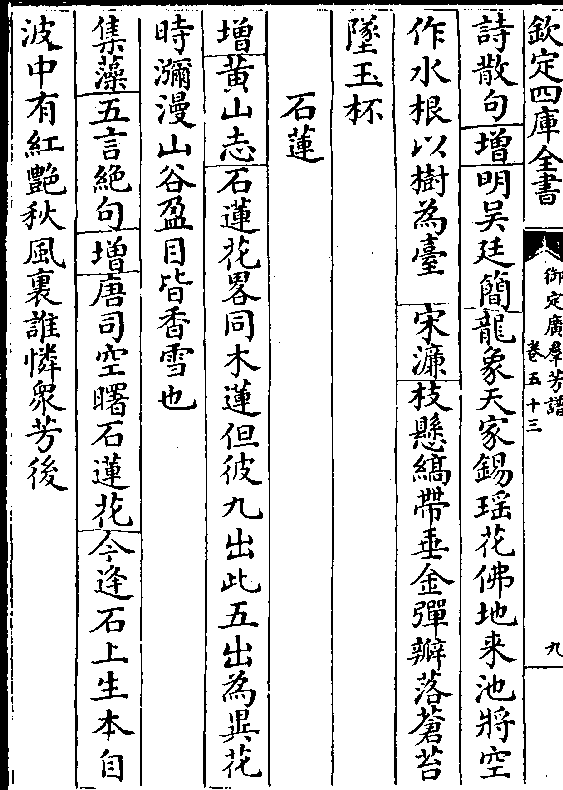 欽定四庫全書
御定廣羣芳譜
卷五十三
九
詩散句增明吳廷簡龍象天家錫瑶花佛地来池將空
作水根以樹為臺 宋濂枝懸縞帶垂金彈瓣落蒼苔
墜玉杯
石蓮
增黄山志石蓮花畧同木蓮但彼九出此五出為異花
時瀰漫山谷盈目皆香雪也
集藻五言絶句增唐司空曙石蓮花今逢石上生本自
波中有紅艶秋風裏誰憐衆芳後